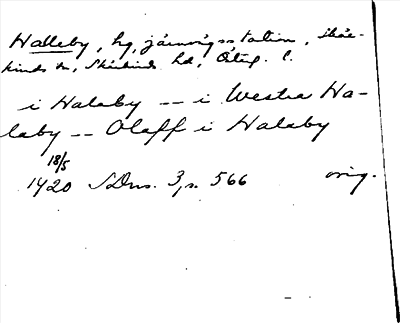 Halleby, hg, järnvägsstation, Skär-
kinds sn, Skärkinds hd, Östg. l.
i Halaby -- i Westra Ha-
laby -- Olaff i Halaby
18/5
1420 SDns. 3, s. 566 orig.